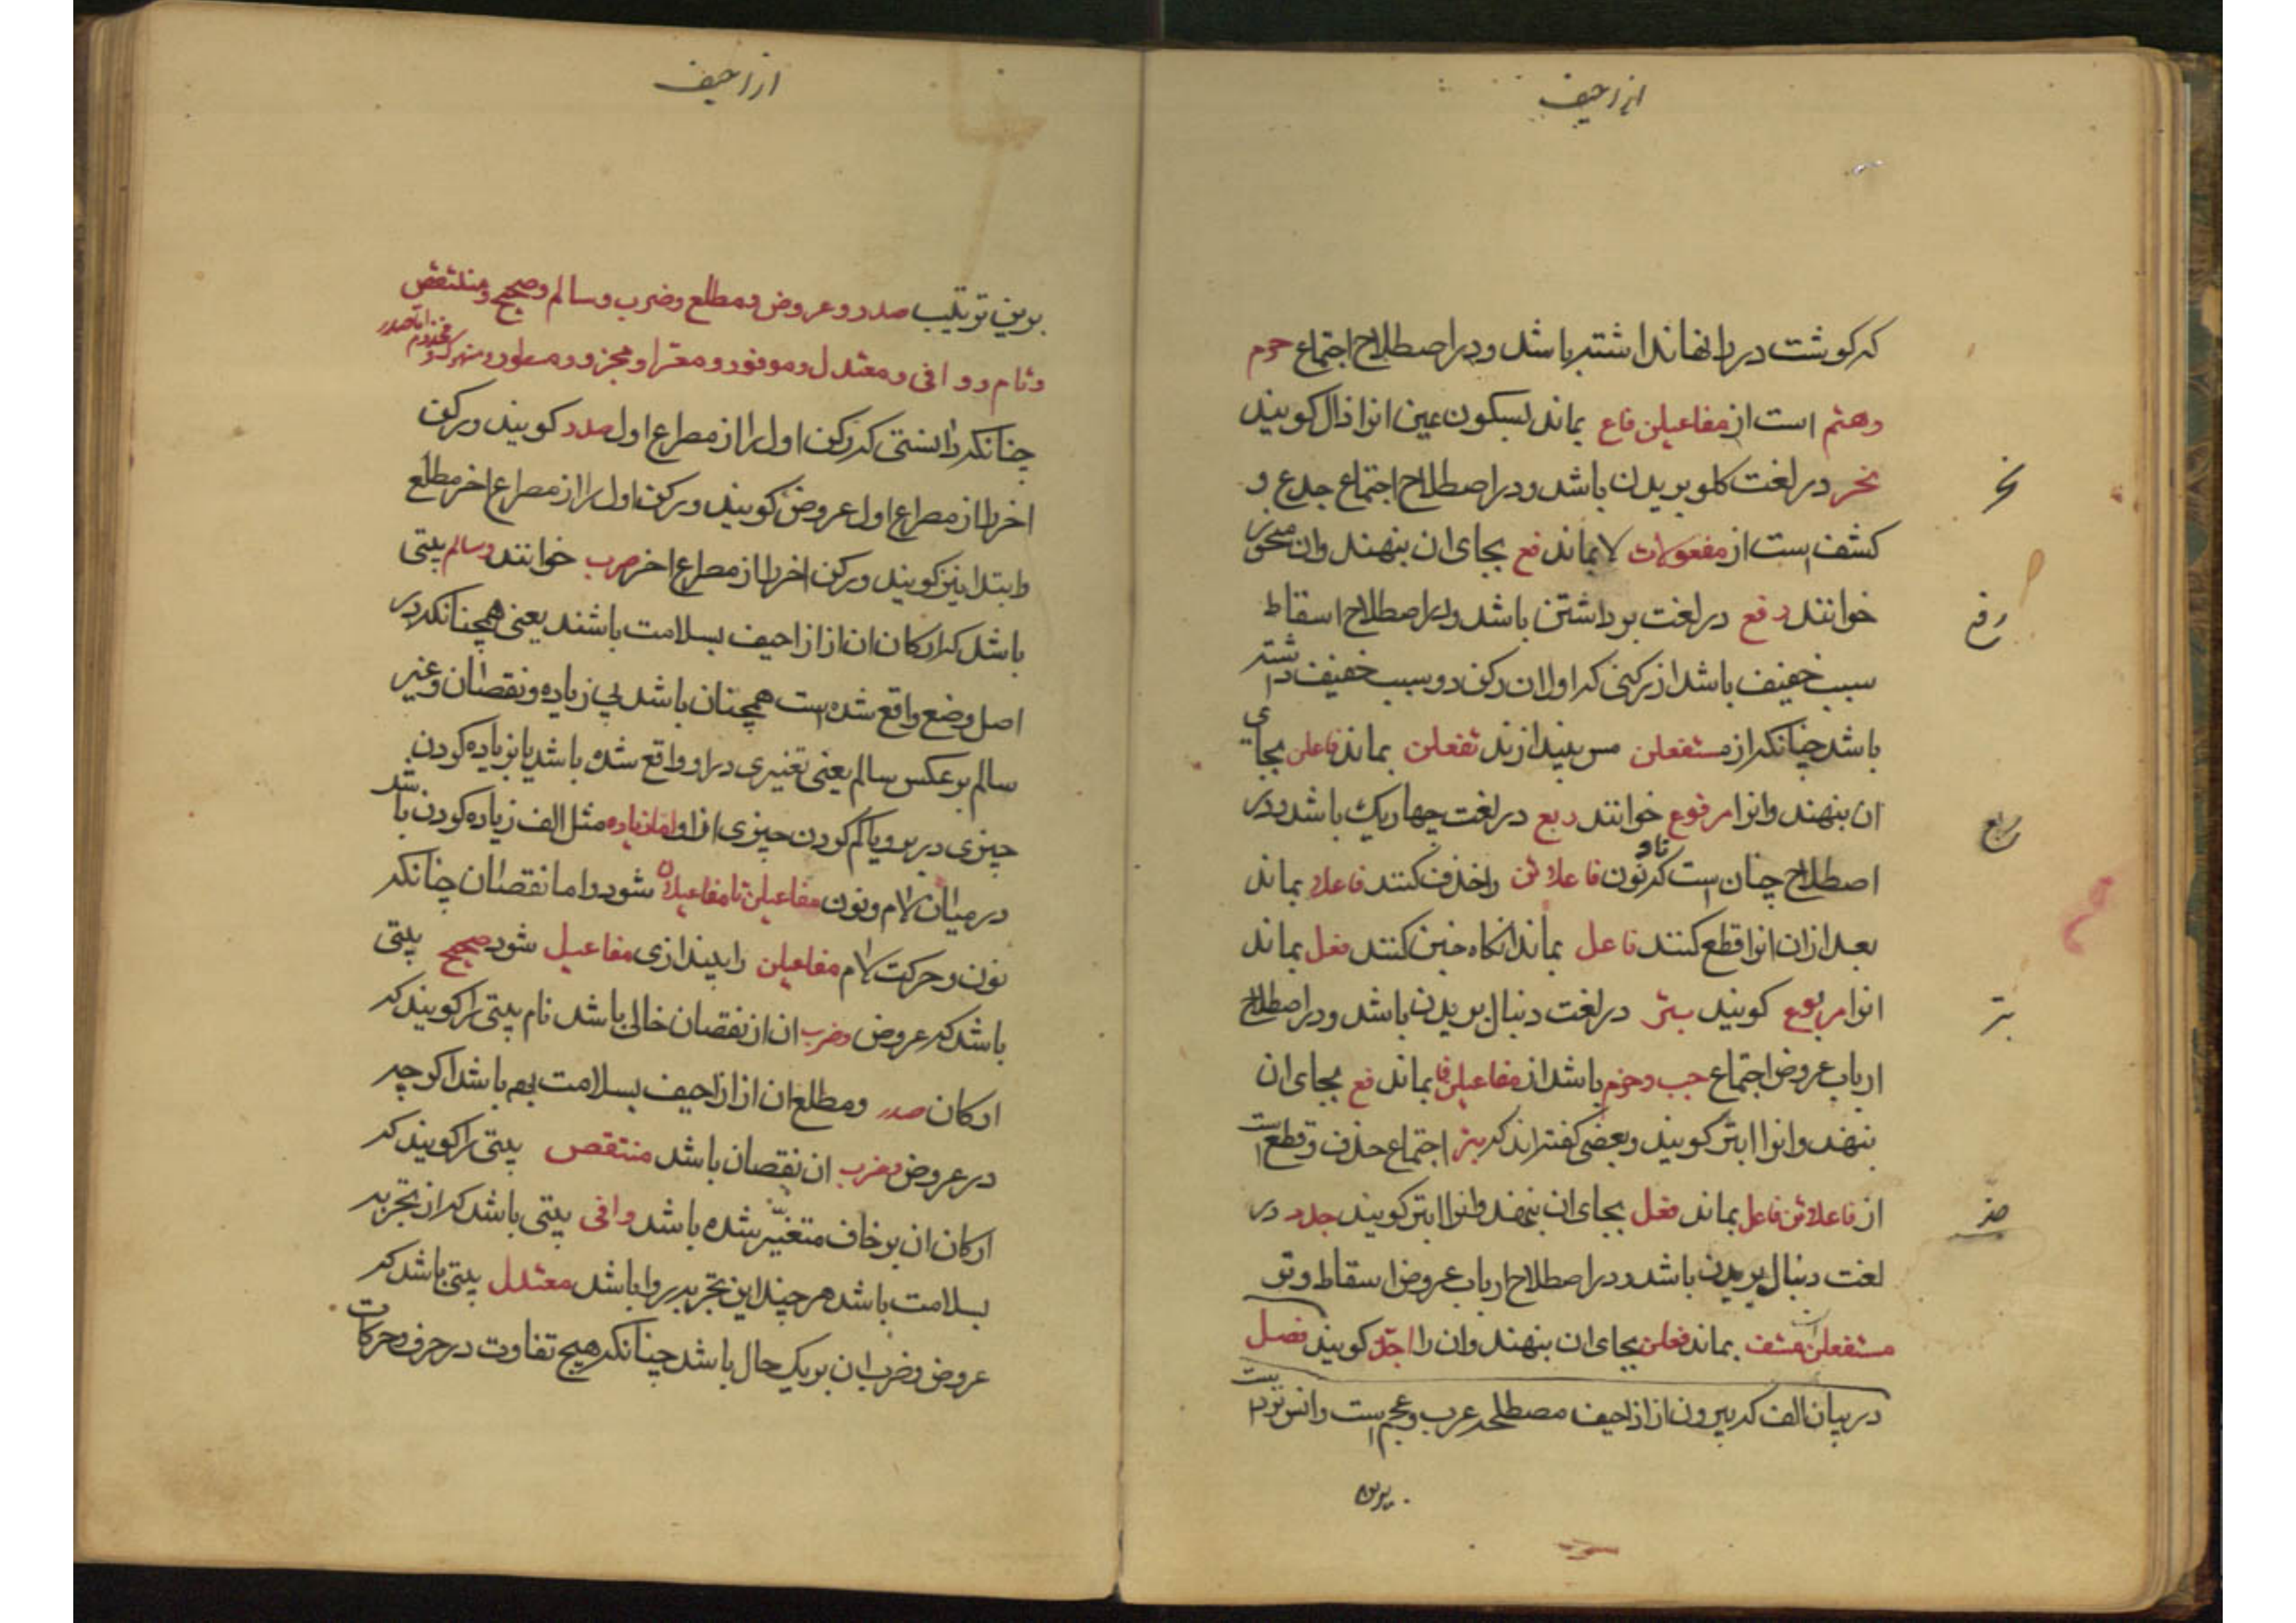 ازاحیف
که گوشت در رانها نداشته باشد و در اصطلاح اجتماع خرم
وهتم است از مفاعیلن فاع بماند بسکون عین انرا ذال کویند
نحر
نحر در لغت کلو بریدن باشد و در اصطلاح اجتماع جدع و
کشف است از مفعولات لا بماند فع بجای ان بنهند وان منحور
رفع
خوانند رفع در لغت برداشتن باشد و در اصطلاح اسقاط
سبب خفیف باشد از رکنی که اول ان رکن دو سبب خفیف داشته
باشد چنانکه از مستفعلن مس بیندازند تفعلن بماند فاعلن بجای
ربع
ان بنهند وانرا مرفوع خوانند ربع در لغت چهاریک باشد و در
اصطلاح چنان است که تا و نون فاعلاتن را حذف کنند فاعلا بماند
بعد ازان انرا قطع کنند فاعل بماند انکاه خبن کنند فعل بماند
بتر
انرا مربوع کویند بتر در لغت دنبال بریدن باشد و در اصطلاح
ارباب عروض اجتماع جب وخرم باشد از مفاعیلن فا بماند فع بجای ان
بنهند وانرا ابتر کویند وبعضی کفته اند که بتر اجتماع حذف وقطع است
از فاعلاتن فاعل بماند فعل بجای ان بنهند وانرا ابتر کویند جدد در
لغت دنبال بریدن باشد و در اصطلاح ارباب عروض اسقاط وتد
مستفعلن است مستف بماند فعلن بجای ان بنهند وان را اجدّ کویند فصل
در بیان القاب که بیرون از ازاحیف مصطلحه عرب وعجم است وانس تودیت
برین
ازاحیف
برین ترتیب صدر وعروض ومطلع وضرب وسالم وصحیح ومنتقص
وتام و وافی ومعتدل وموفور ومعرا ومجزو ومسطور ومنهوک و مخزوم اما صدر
چنانکه دانستی که رکن اول را از مصراع اول صدر کویند ورکن
اخر را از مصراع اول عروض کویند ورکن اول را از مصراع اخر مطلع
وابتدا نیز کویند ورکن اخر را از مصراع اخر ضرب خوانند وسالم بیتی
باشد که ارکان ان از ازاحیف بسلامت باشند یعنی همچنانکه در
اصل وضع واقع شده است همچنان باشد بی زیاده ونقصان وغیر
سالم بر عکس سالم یعنی تغییری در او واقع شده باشد یا بزیاده کردن
چیزی در برو یا کم کردن چیزی ازو اما زیاده مثل الف زیاده کردن باشد
در میان لام ونون مفاعیلن تا مفاعیلان شود واما نقصان چنانکه
نون وحرکت لام مفاعیلن را بیندازی مفاعیل شود صحیح بیتی
باشد که عروض وضرب ان از نقصان خالی باشد تام بیتی را کویند که
ارکان صدر ومطلع ان از ازاحیف بسلامت بود باشد اکرچه
در عروض وضرب ان نقصان باشد منتقص بیتی را کویند که
ارکان ان بزحاف متغیّر شده باشد وافی بیتی باشد که از تجزیه
بسلامت باشد هرچند این تجزیه روا باشد معتدل بیتی باشد که
عروض وضرب ان بریک حال باشد چنانکه هیچ تفاوت در حرف وحرکات